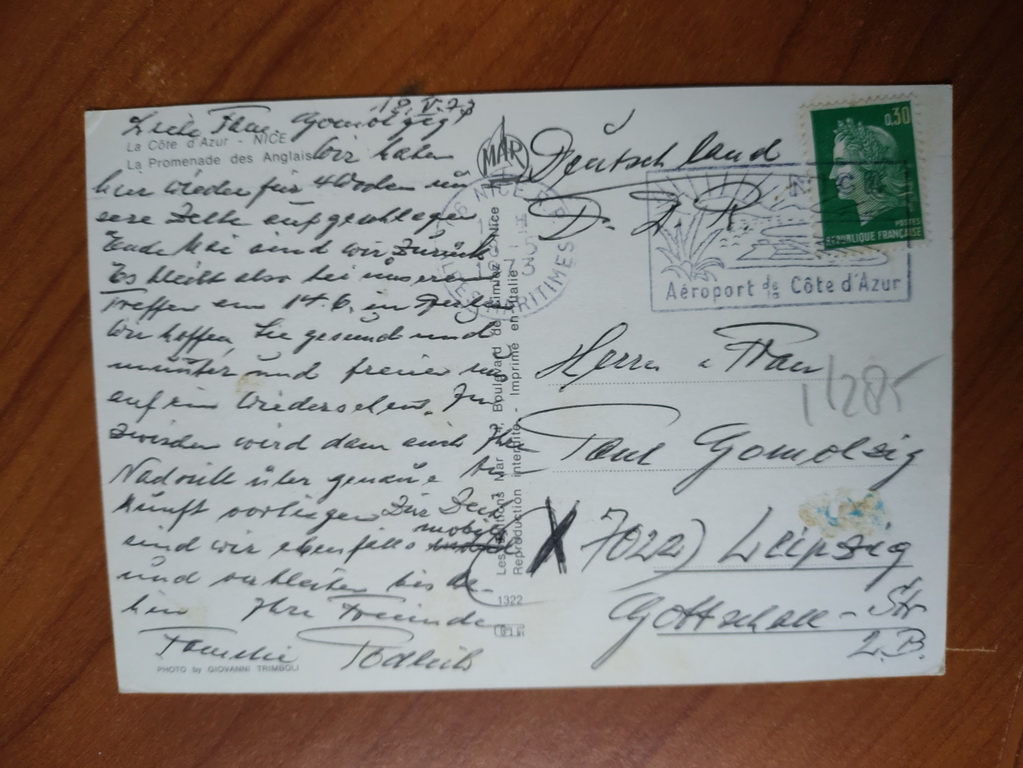 18.V.73
Liebe Fam Gomolzig!
La Côte d'Azur - NICE
La Promenade des Anglais
Wir haben
hier wieder für 4 Wochen un
sere Zelte aufgeschlagen
Ende Mai sind wir zurück
Es bleibt also bei unserem
Treffen am 14.6. in
Wir hoffen Sie gesund und
munter und freuen uns
auf ein Wiedersehen. In
zwischen wird dann auch Ihre
Nachricht über genaue An
kunft vorliegen. Zur Zeit
sind wir ebenfalls mobil
und verbleiben bis da-
hin Ihre Freunde
Familie
PHOTO by GIOVANNI TRIMBOLI
MAR
Les Editions Mar Boulevard de Cimiez Nice
Reproduction interdite - Imprimé en Italie
1322
NICE
ALPES MARITIMES
NICE
Aéroport de la Côte d'Azur
0,30
POSTES
REPUBLIQUE FRANÇAISE
Deutschland
D. D. R.
Herrn u Frau
11285
Paul Gomolzig
X 7022) Leipzig
Gottschall-Str
2.B.